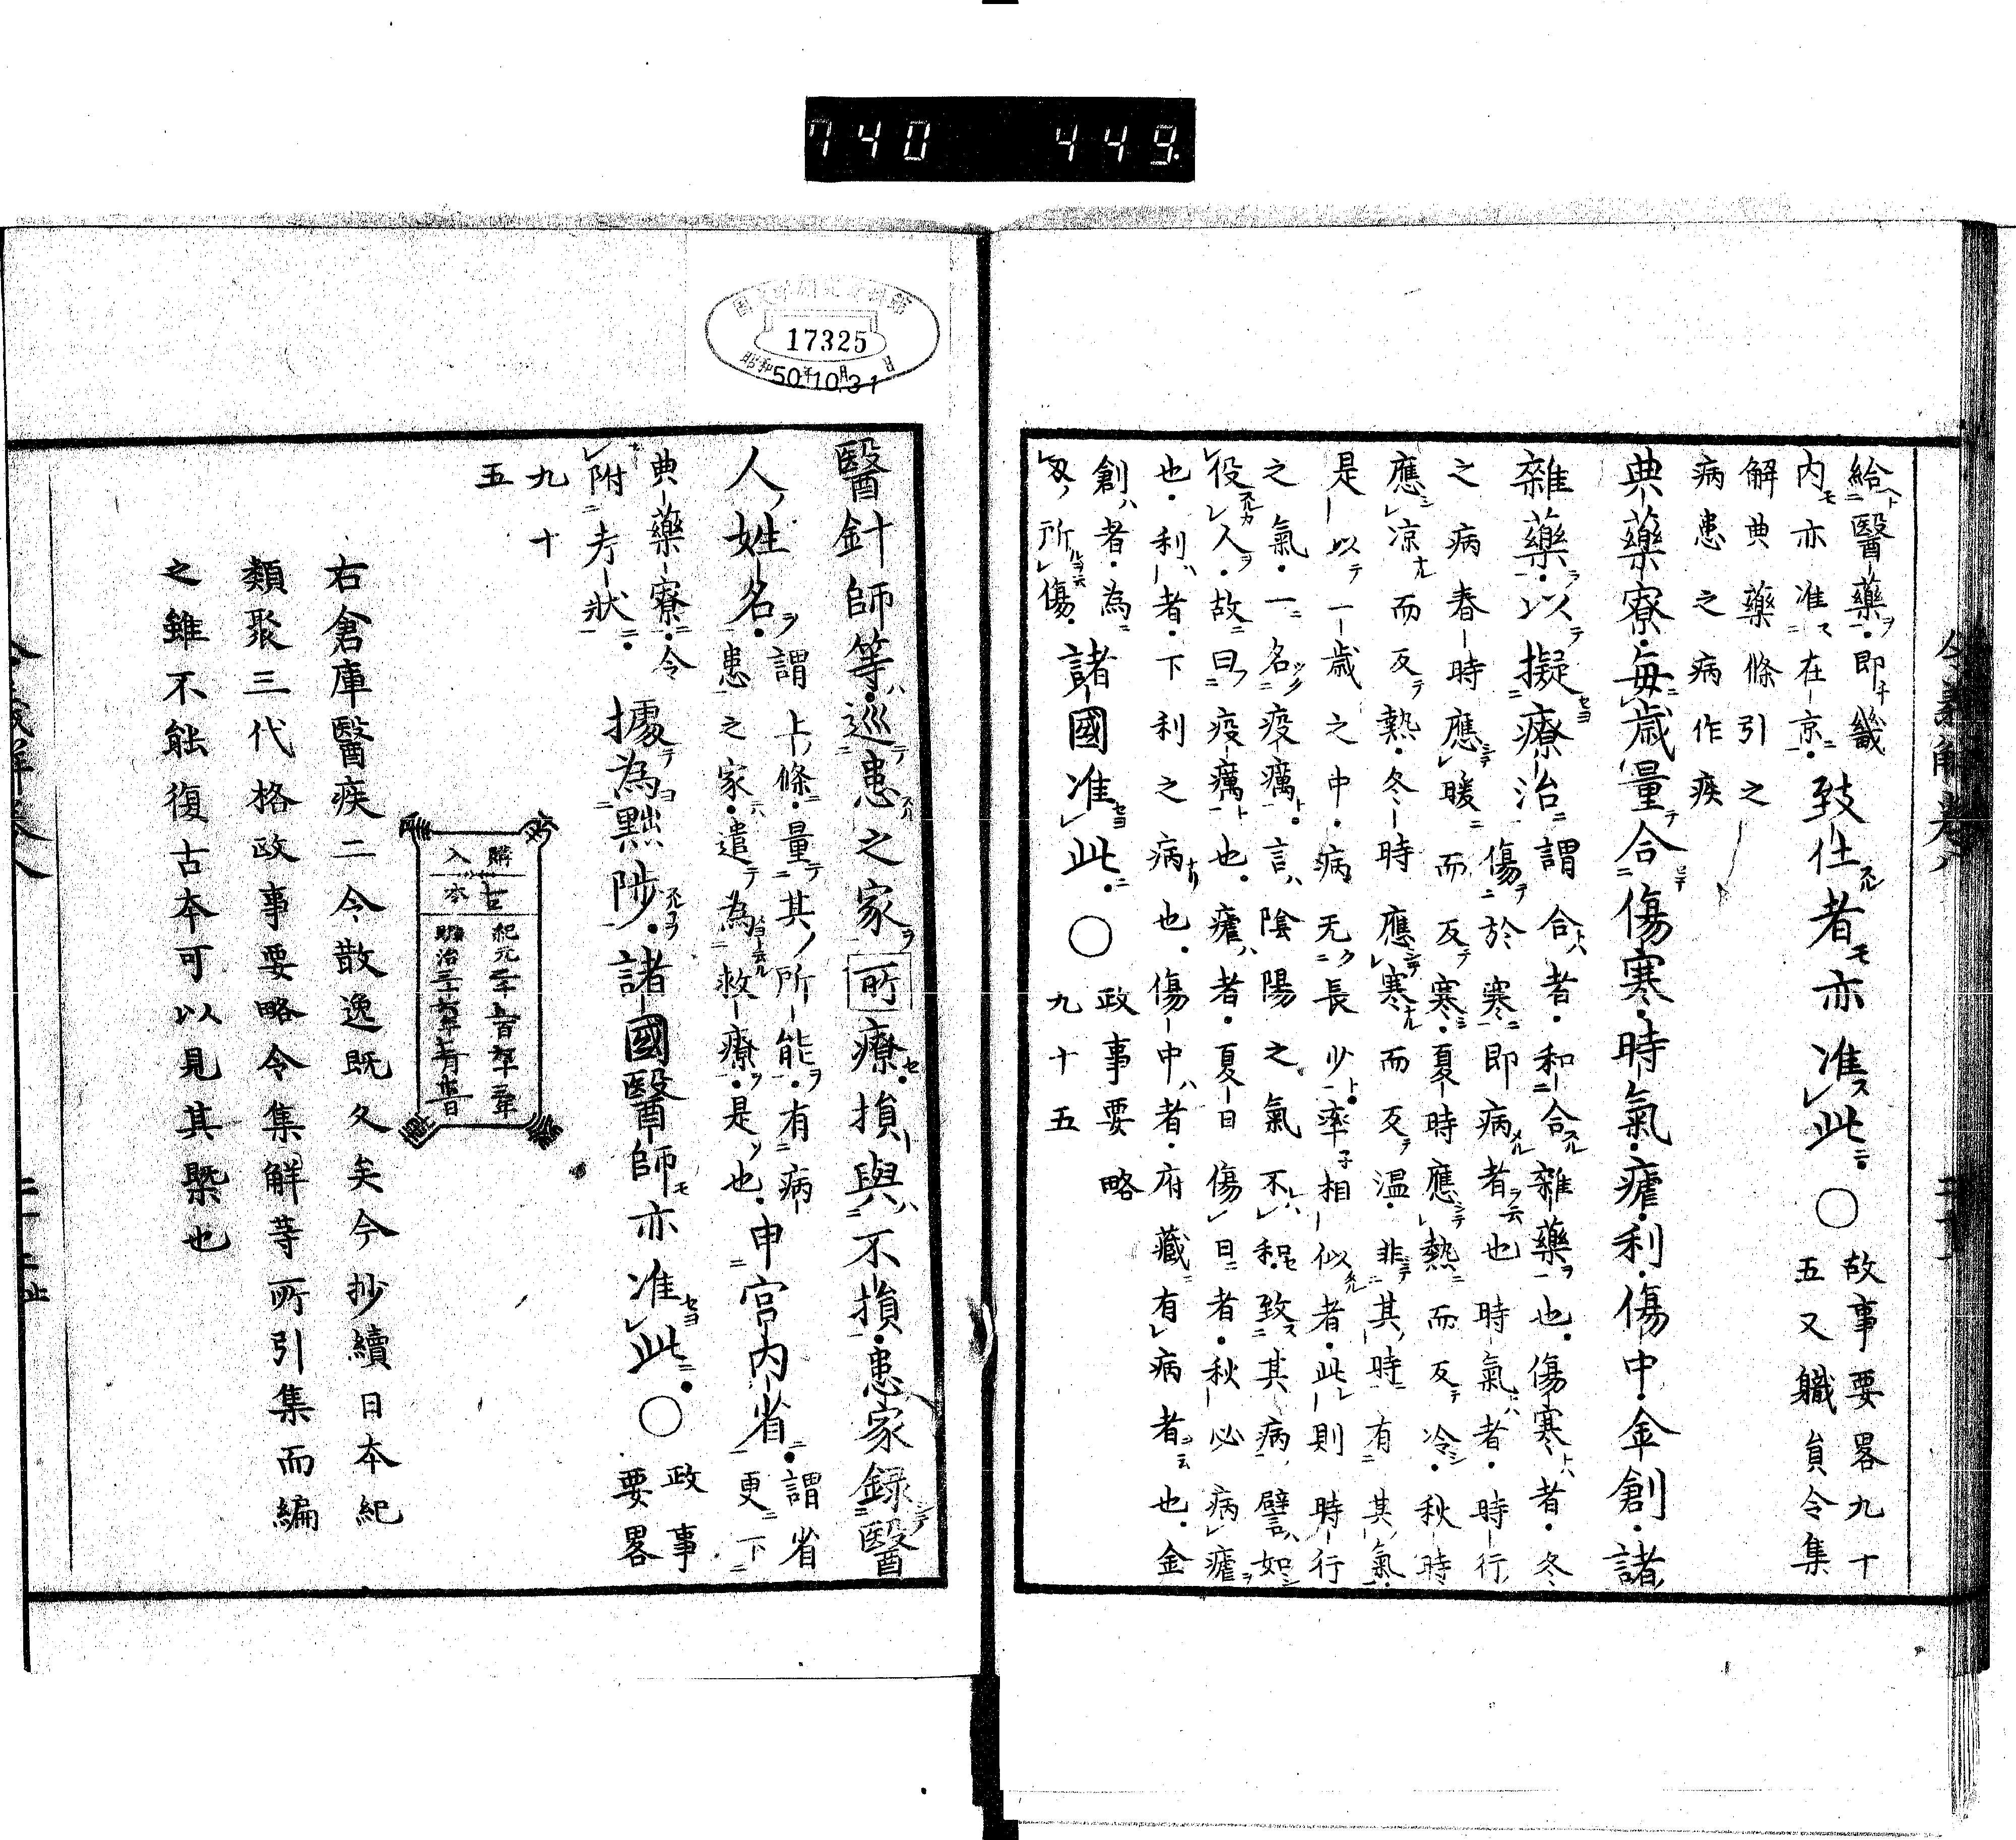 740 449
給醫藥即畿
内亦准在京
致仕者亦准此○
故事要畧九十
五又職員令集
解典藥條引之
病患之病作疾
典藥寮毎歳量合傷寒時氣瘧利傷中金創諸
雜藥以擬療治
謂合者和合雜藥也傷寒者冬
傷於寒即病者也時氣者時行
之病春時應暖而反寒夏時應熱而反冷秋時
應凉而反熱冬時應寒而反温非其時有其氣
是以一歳之中病无長少率相似者此則時行
之氣一名疫癘言陰陽之氣不和致其病譬如
役人故曰疫癘也瘧者夏日傷日者秋必病瘧
也利者下利之病也傷中者府藏有病者也金
創者為
刄所傷
諸國准此○
政事要略
九十五
醫針師等巡患之家所療損與不損患家録醫
人姓名
謂上條量其所能有病
患之家遣為救療是也
申宮内省
謂省
更下
典藥寮令
附考状
據為黜陟諸國醫師亦准此○
政事
要畧
九十
五
右倉庫醫疾二令散逸既久矣今抄續日本紀
類聚三代格政事要略令集解等所引集而編
之雖不能復古本可以見其槩也
購入
17325
昭和50年10月31日